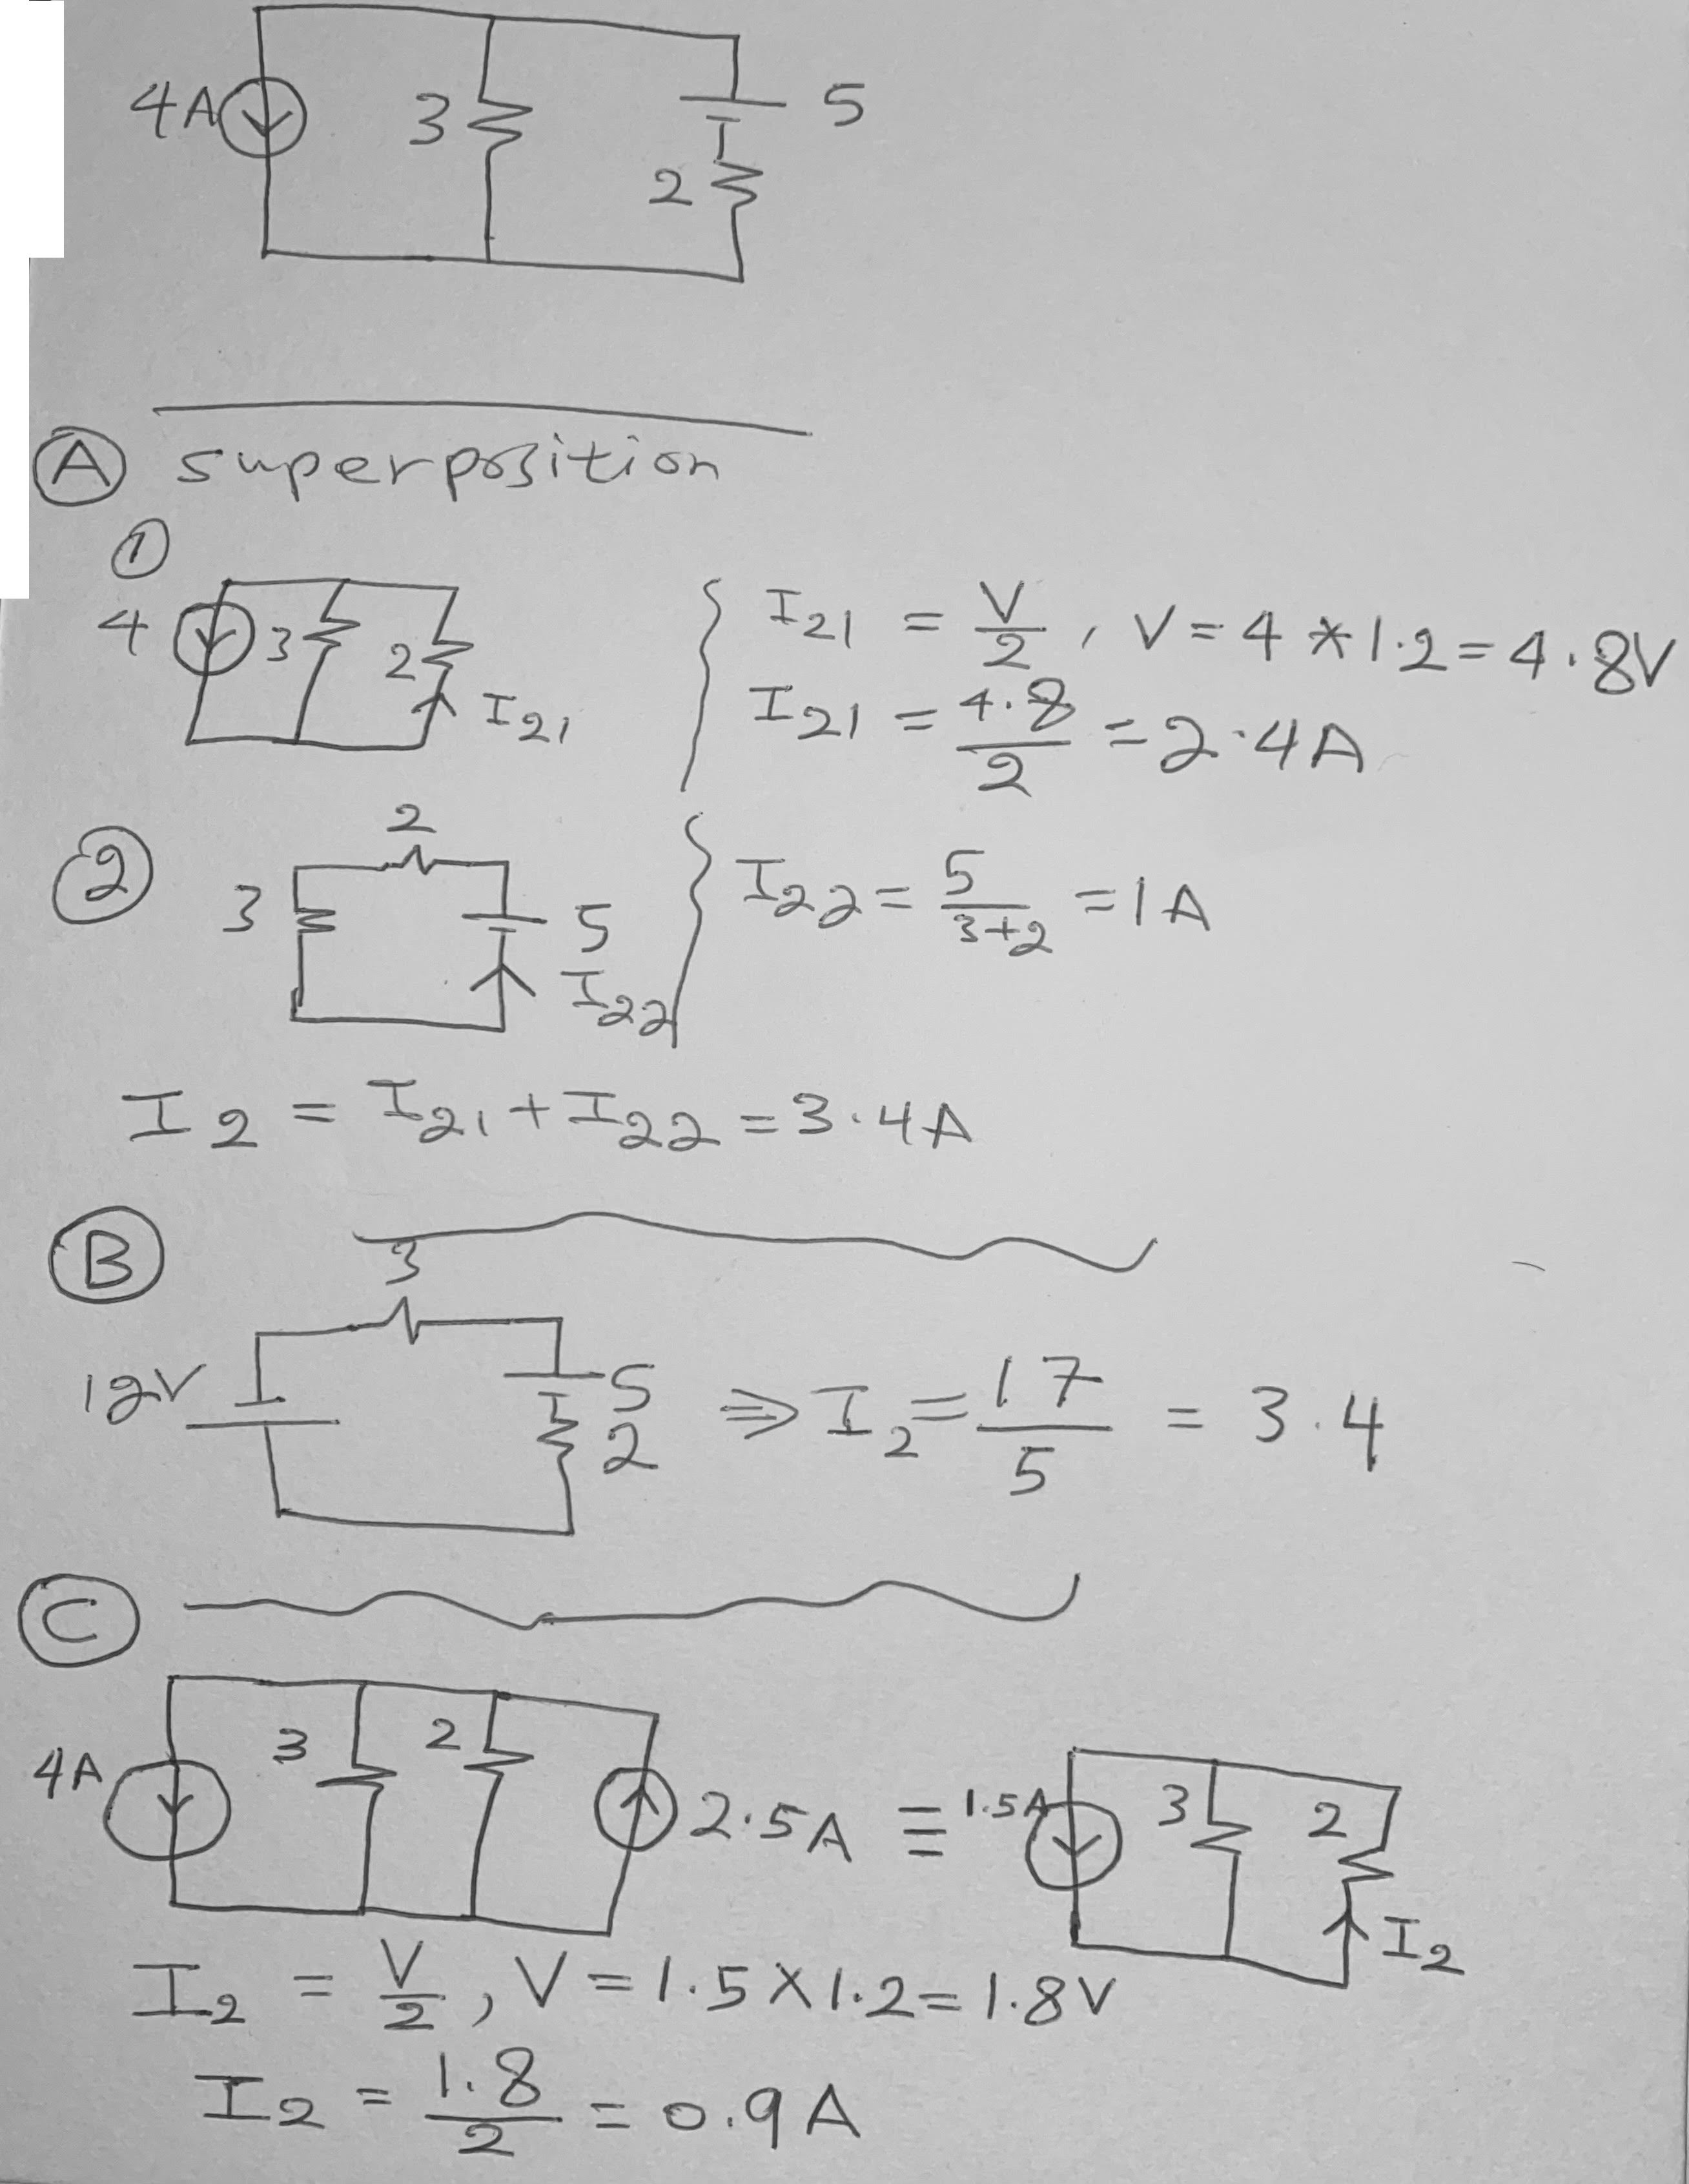 4A 3 5
2
A superposition
1
4 3 2 I21
I21 = V/2 , V = 4 * 1.2 = 4.8V
I21 = 4.8/2 = 2.4A
2
2
3 5
I22
I22 = 5/3+2 = 1A
I2 = I21 + I22 = 3.4A
B
3
12V 5
2
⇒ I2 = 17/5 = 3.4
C
4A 3 2 2.5A ≡ 1.5A 3 2
I2
I2 = V/2 , V = 1.5 X 1.2 = 1.8V
I2 = 1.8/2 = 0.9A